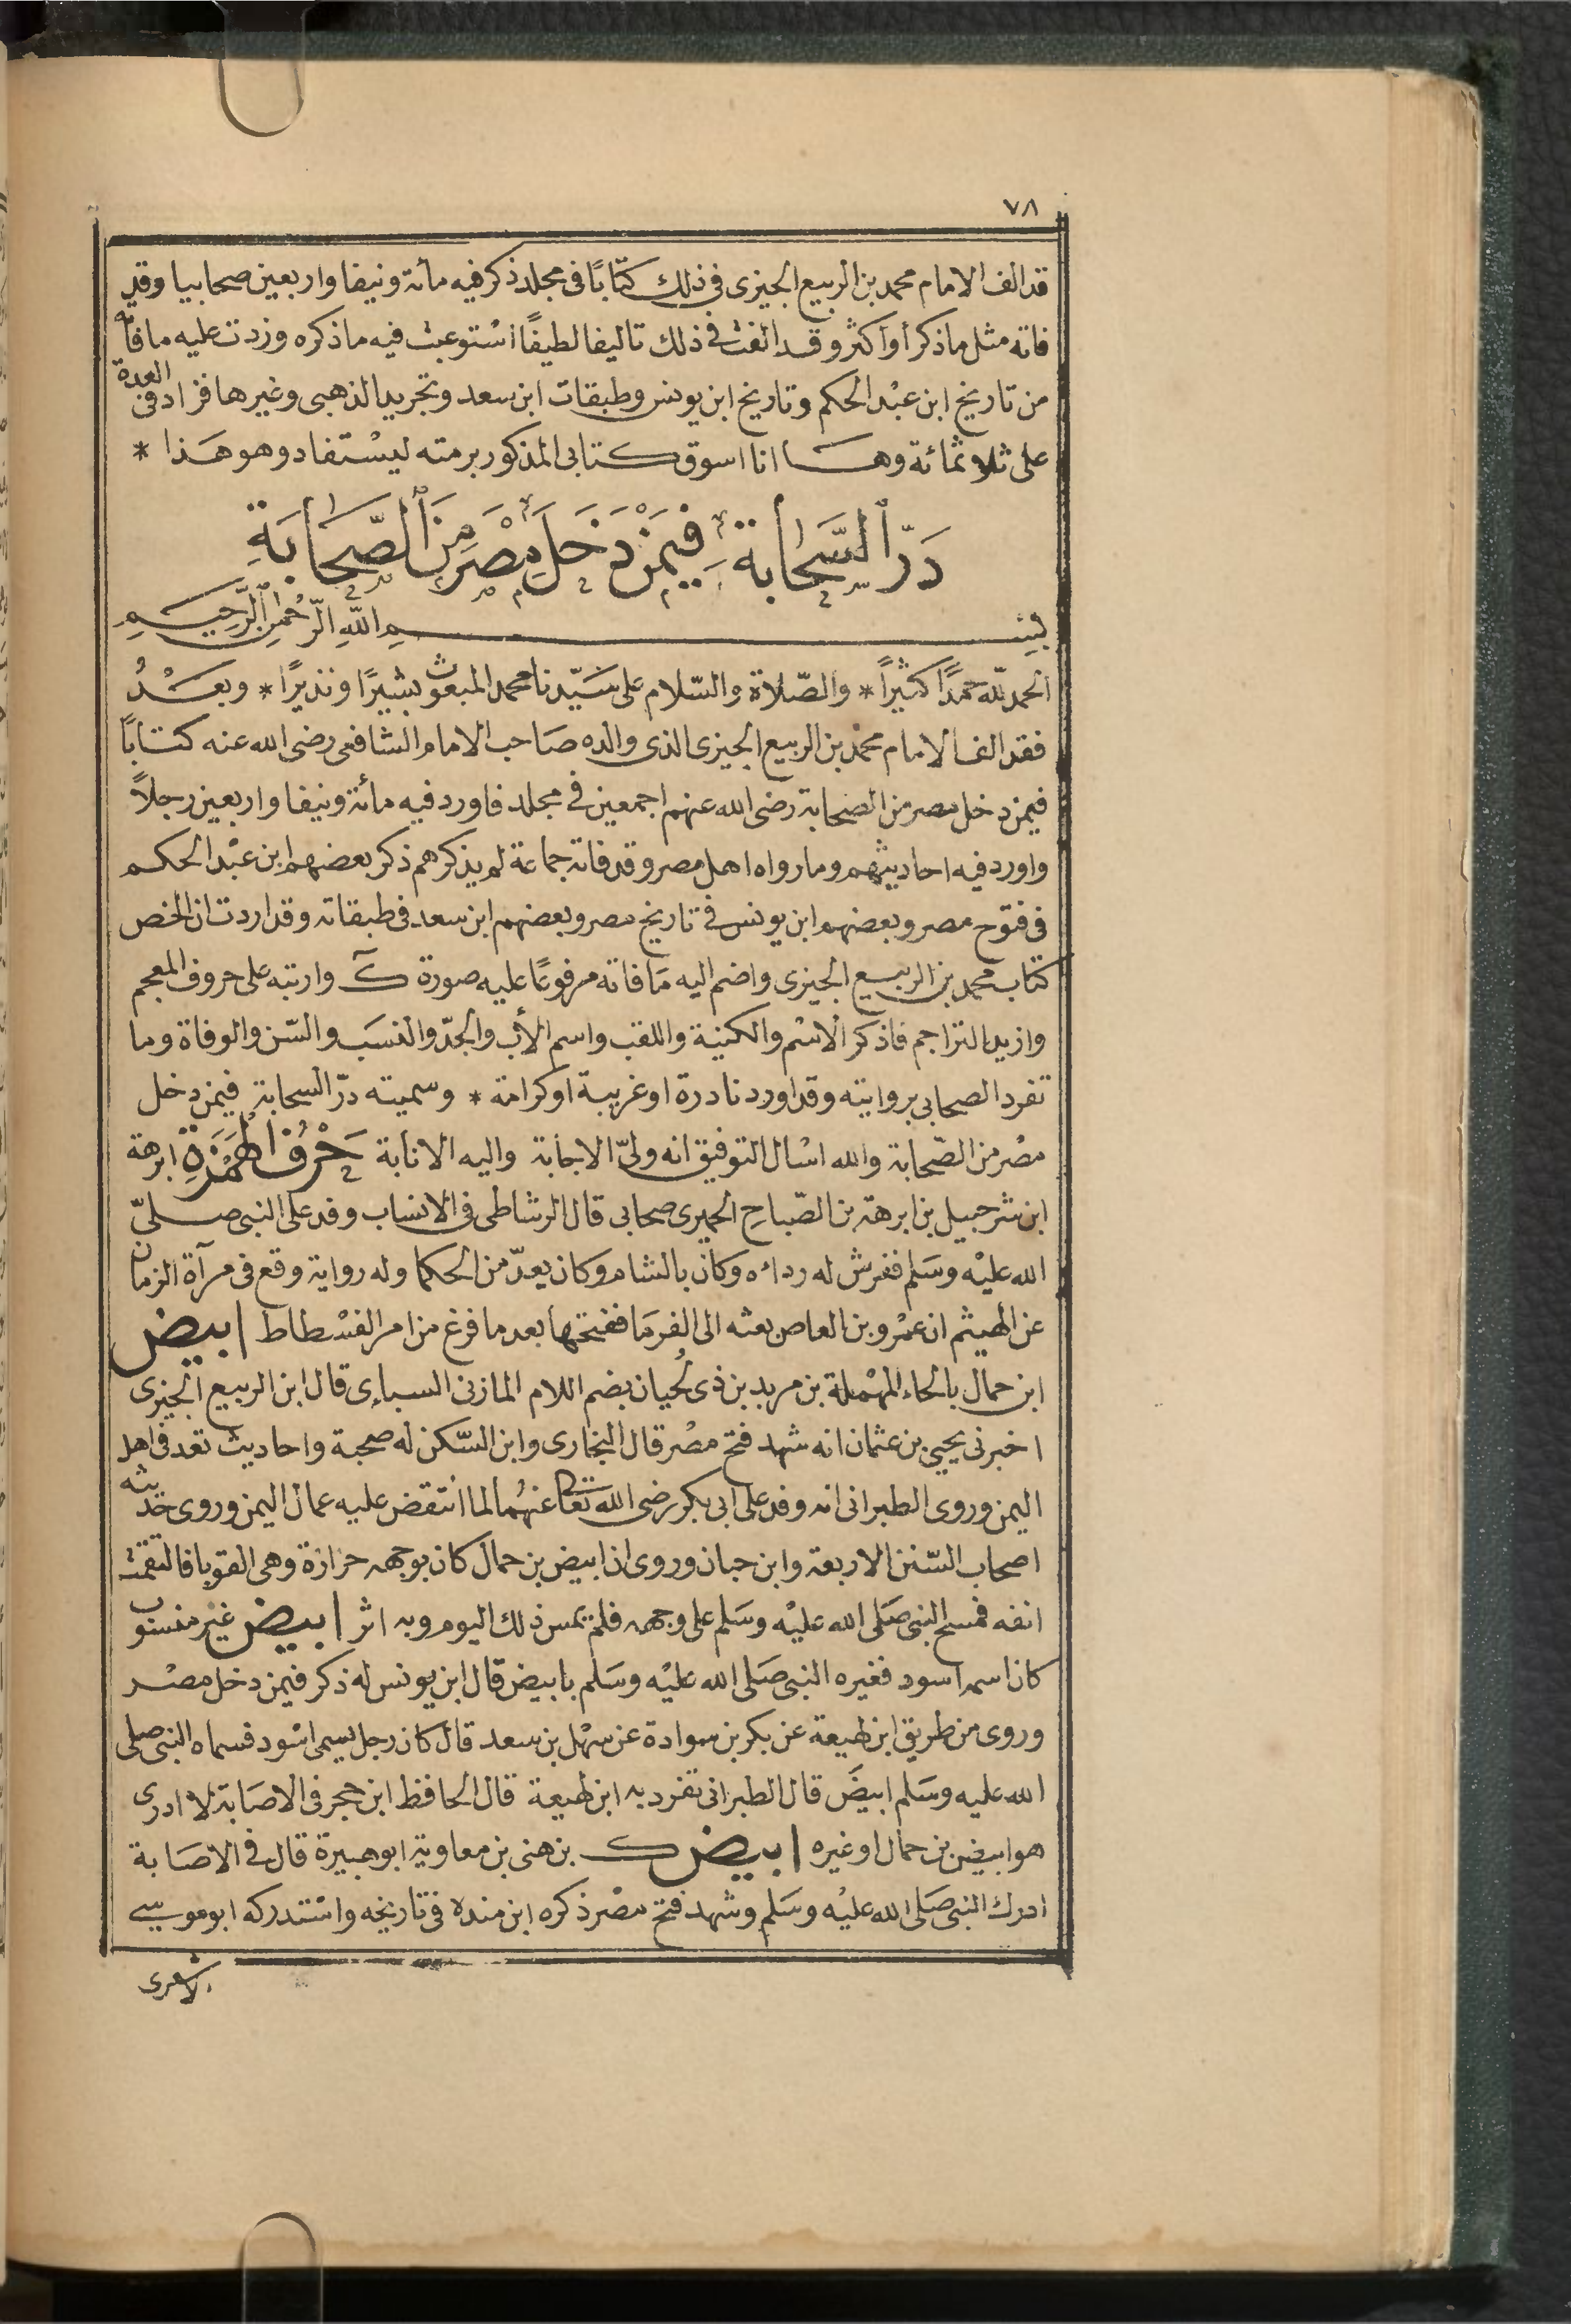 ٧٨
قد الف الامام محمد بن الربيع الجيزى فى ذلك كتابًا فى مجلد ذكر فيه مائة ونيفا واربعين صحابيا وقد
فاته مثل ما ذكر أو أكثر وقد الفت فى ذلك تاليفا لطيفًا استوعبت فيه ما ذكره وزدت عليه ما فاته
من تاريخ ابن عبْد الحكم وتاريخ ابن يونس وطبقات ابن سعد وتجريد الذهبى وغيرها فزادت العدة
على ثلاثمائة وهـا انا اسوق كتابى المذكور برمته ليسْتفاد وهو هَذا *
دَرّ السَّحَابة فِيمَنْ دَخَلَ مِصْرَ مِنَ الصَّحَابَةِ
بِسْمِ اللَّهِ الرَّحْمٰنِ الرَّحِيمِ
الحمد للّه حمدًا كثيرًا * والصّلاة والسّلام على سَيّدنا محمد المبعوث بشيرًا ونذيرًا * وبعَـدُ
فقد الف الامام محمد بن الربيع الجيزى الذى والده صَاحب الامام الشافعى رضى الله عنه كتابًا
فيمن دخل مصر من الصحابة رضى الله عنهم اجمعين فى مجلد فاورد فيه مائة ونيفا واربعين رجلاً
واورد فيه احاديثهم وما رواه اهل مصر وقد فاته جماعة لم يذكرهم ذكر بعضهم ابن عبْد الحكم
فى فتوح مصر وبعضهم ابن يونس فى تاريخ مصر وبعضهم ابن سعد فى طبقاته وقد اردت ان الخص
كتاب محمد بن الربيع الجيزى واضم اليه مَا فاته مرفوعًا عليه صورة ك وارتبه على حروف المعجم
وازيد التراجم فاذكر الاسْم والكنية واللقب واسم الأب والجدّ والنسَب والسّن والوفاة وما
تفرد الصحابى بروايته وقد اورد نادرة او غريبة او كرامة * وسميته درّ السحابة فيمن دخل
مصْر من الصّحابة والله اسْال التوفيق انه ولىّ الاجابة واليه الانابة حَرْفُ الهَمْزَةِ ابرهة
ابن شرحبيل بن ابرهة بن الصّباح الحميرى صحابى قال الرشاطى فى الانساب وفد على النبى صلىّ
الله عليْه وسَلم ففرش له رداءه وكان بالشام وكان يعدّ من الحكما وله رواية وقع فى مرآة الزمان
عن الهيثم ان عمْرو بن العاص بعثه الى الفرمَا ففتحها بعد ما فرغ من امر الفسْطاط ابيض
ابن حمال بالحاء المهْملة بن مريد بن ذى لُحيان بضم اللام المازنى السباءى قال ابن الربيع الجيزى
اخبرنى يحيى بن عثمان انه شهد فتح مصْر قال البخارى وابن السّكن له صحبة واحاديث تعد فى اهل
اليمن وروى الطبرانى انه وفد على ابى بكر رضى الله تعا عنهُما لما انتقض عليه عمال اليمن وروى حديثه
اصحاب السّنن الاربعة وابن حبان وروى ان ابيض بن حمال كان بوجهه حزازة وهى القوبا فالتقمت
انفه فمسح النبى صَلى الله عليْه وسَلم على وجهه فلم يمس ذلك اليوم وبه اثر ابيض غير منسوب
كان اسمه اسود فغيره النبى صَلى الله عليْه وسَلم بابيض قال ابن يونس له ذكر فيمن دخل مصْر
وروى من طريق ابن لهيعة عن بكر بن سوادة عن سهْل بن سعد قال كان رجل يسمى اسْود فسماه النبى صلى
الله عليه وسَلم ابيضَ قال الطبرانى تفرد به ابن لهيعة قال الحافظ ابن حجر فى الاصَابة لا ادرى
هو ابيض بن حمال او غيره ابيض ك بن هنى بن معاوية ابو هبيرة قال فى الاصَابة
ادرك النبى صَلى الله عليْه وسَلم وشهد فتح مصْر ذكره ابن مندة فى تاريخه واسْتدركه ابو موسى
الاشعرى